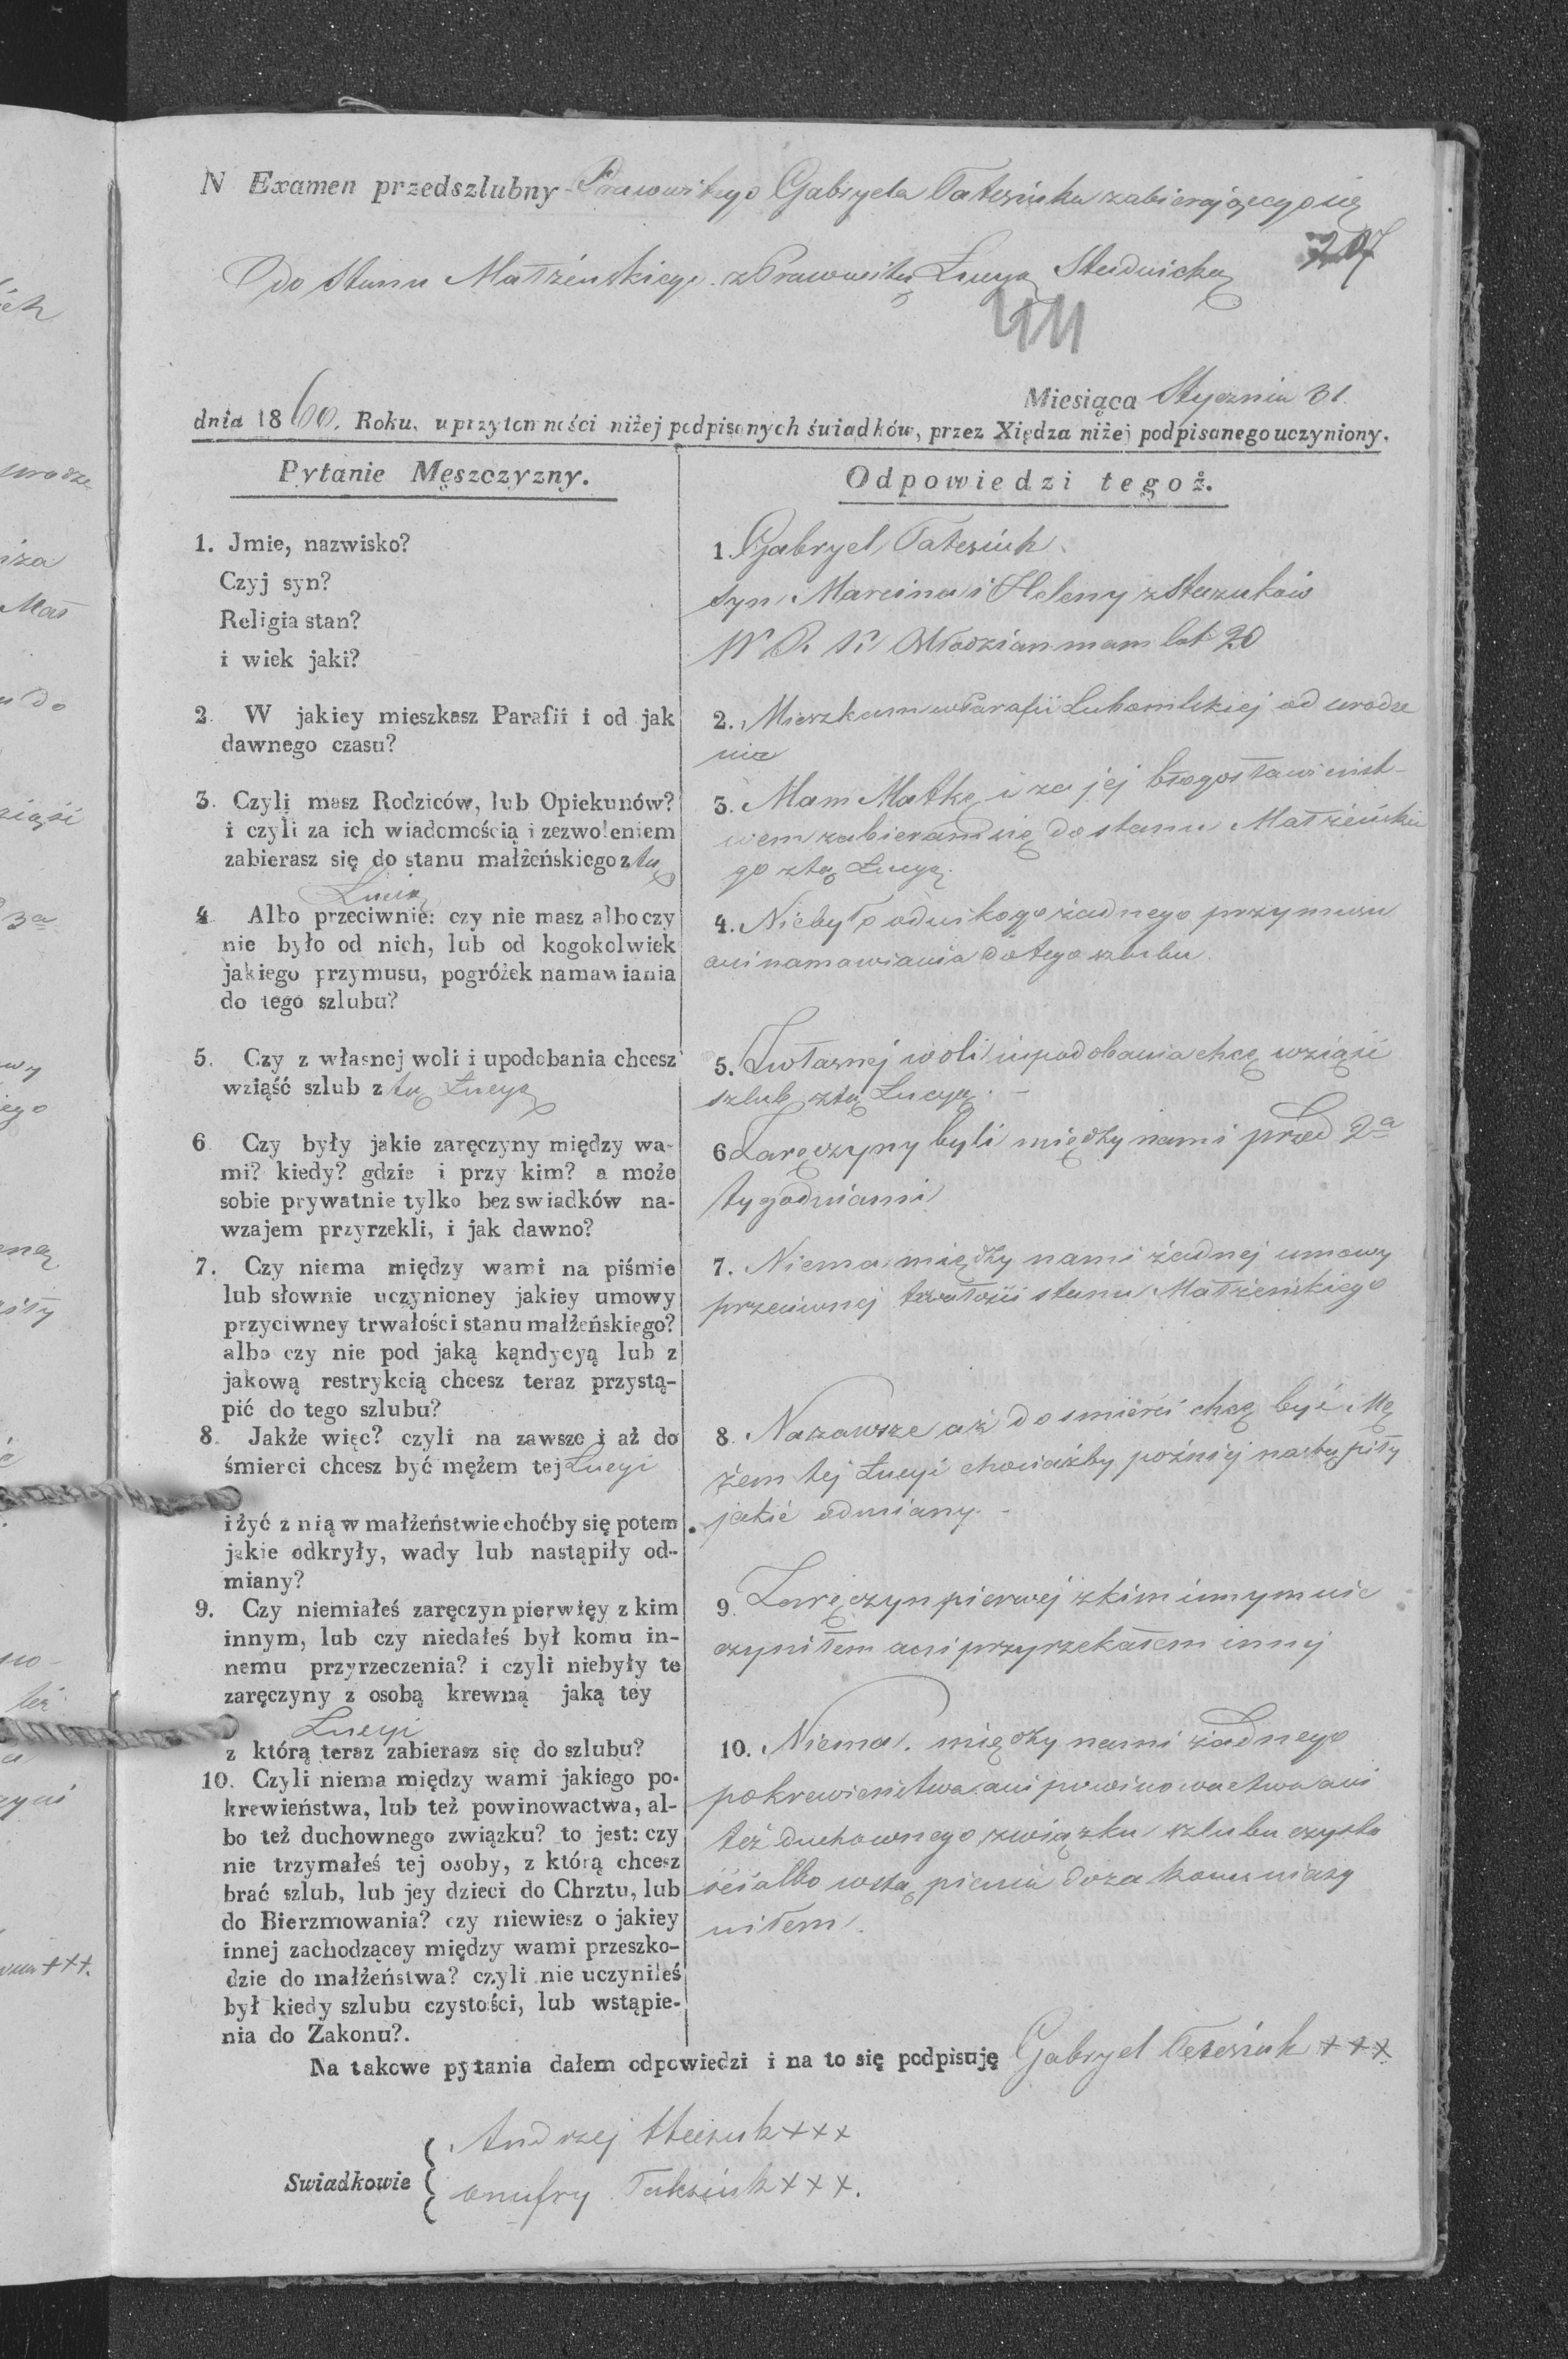 N Examen przedszlubny Prawowitego Gabryela Tatesiuka zabierającego się
207
do Stanu Małżeńskiego z Prawowitą Łucyą Studnicką
411
Miesiąca Stycznia 31.
dnia 1860. Roku, w przytomności niżej podpisanych świadków, przez Xiędza niżej podpisanego uczyniony.
Pytanie Męszczyzny.
1. Jmie, nazwisko?
Czyj syn?
Religia stan?
i wiek jaki?
2. W jakiey mieszkasz Parafii i od jak
dawnego czasu?
3. Czyli masz Rodziców, lub Opiekunów?
i czyli za ich wiadomością i zezwoleniem
zabierasz się do stanu małżeńskiego z tą
Łucyą
4 Albo przeciwnie: czy nie masz albo czy
nie było od nich, lub od kogokolwiek
jakiego przymusu, pogróżek namawiania
do tego szlubu?
5. Czy z własnej woli i upodobania chcesz
wziąść szlub z tą Łucyą
6 Czy były jakie zaręczyny między wa-
mi? kiedy? gdzie i przy kim? a może
sobie prywatnie tylko bez swiadków na-
wzajem przyrzekli, i jak dawno?
7. Czy niema między wami na piśmie
lub słownie uczynioney jakiey umowy
przyciwney trwałości stanu małżeńskiego?
albo czy nie pod jaką kąndycyą lub z
jakową restrykcią chcesz teraz przystą-
pić do tego szlubu?
8. Jakże więc? czyli na zawsze i aż do
śmierci chcesz być mężem tej Łucyi
i żyć z nią w małżeństwie choćby się potem
jakie odkryły, wady lub nastąpiły od-
miany?
9. Czy niemiałeś zaręczyn pierwięy z kim
innym, lub czy niedałeś był komu in-
nemu przyrzeczenia? i czyli niebyły te
zaręczyny z osobą krewną jaką tey
Łucyi
z którą teraz zabierasz się do szlubu?
10. Czyli niema między wami jakiego po-
krewieństwa, lub też powinowactwa, al-
bo też duchownego związku? to jest: czy
nie trzymałeś tej osoby, z którą chcesz
brać szlub, lub jey dzieci do Chrztu, lub
do Bierzmowania? czy niewiesz o jakiey
innej zachodzącey między wami przeszko-
dzie do małżeństwa? czyli nie uczyniłeś
był kiedy szlubu czystości, lub wstąpie-
nia do Zakonu?.
Odpowiedzi tegoż.
1 Gabryel Tatesiuk
syn Marcina i Heleny z Staruków
W R. K. Młodzian mam lat 20
2. Mieszkam w Parafii Lubomlskiej od urodze
nia
3. Mam Matkę i za jej błogosławieńst-
wem zabieram się do stanu Małżeńskie
go z tą Łucyą.
4. Niebyło od nikogo żadnego przymusu
ani namawiania do tego szlubu.
5. Z własnej woli i upodobania chcę wziąść
szlub z tą Łucyą. -
6 Zaręczyny byli między nami przed 2a
tygodniami
7. Niema między nami żadnej umowy
przeciwnej trwałości stanu Małżeńskiego
8. Nazawsze aż do smierci chcę być Mę
żem tej Łucyi chociażby poźniej nastąpiły
jakie odmiany. -
9. Zaręczyn pierwej z kim innym nie
czyniłem ani przyrzekałem innej
10. Niema między nami żadnego
pokrewieństwa ani powinowactwa ani
też duchownego związku szlubu czysto
ści albo wstąpienia do zakonu nie uczy
niłem.
Na takowe pytania dałem odpowiedzi i na to się podpisuję Gabryel Tetesiuk +++
Swiadkowie
Andrzej +++
Onufry Taksiuk +++.